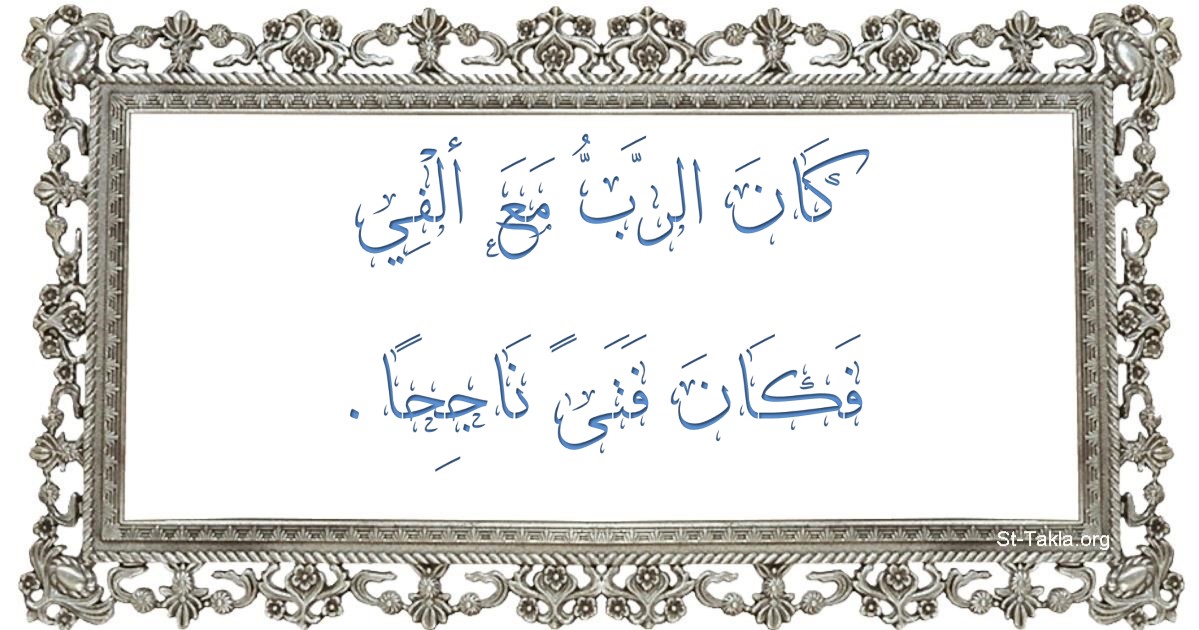 كَانَ الرَّبُّ مَعَ ألْفِي
فَكَانَ فَتَىً نَاجِحًا .
St-Takla.org